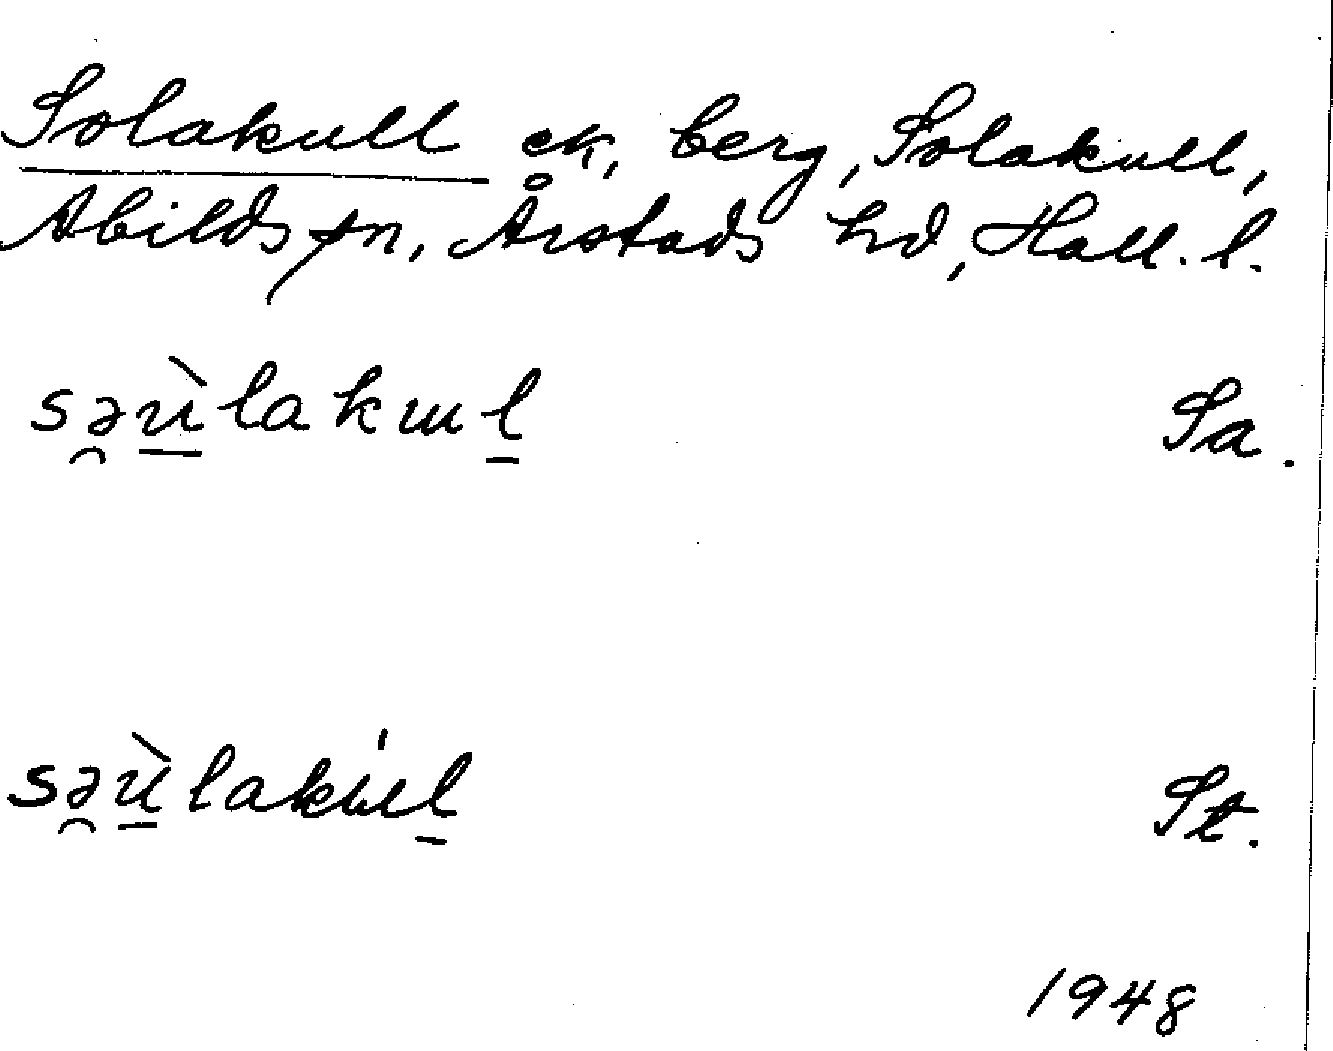 Solakull ck, berg, Solakull,
Abilds sn, Årstads hd, Hall. l.
sə̯ùlakɯl Sa.
sə̯ùlakɯ̍l St.
1948